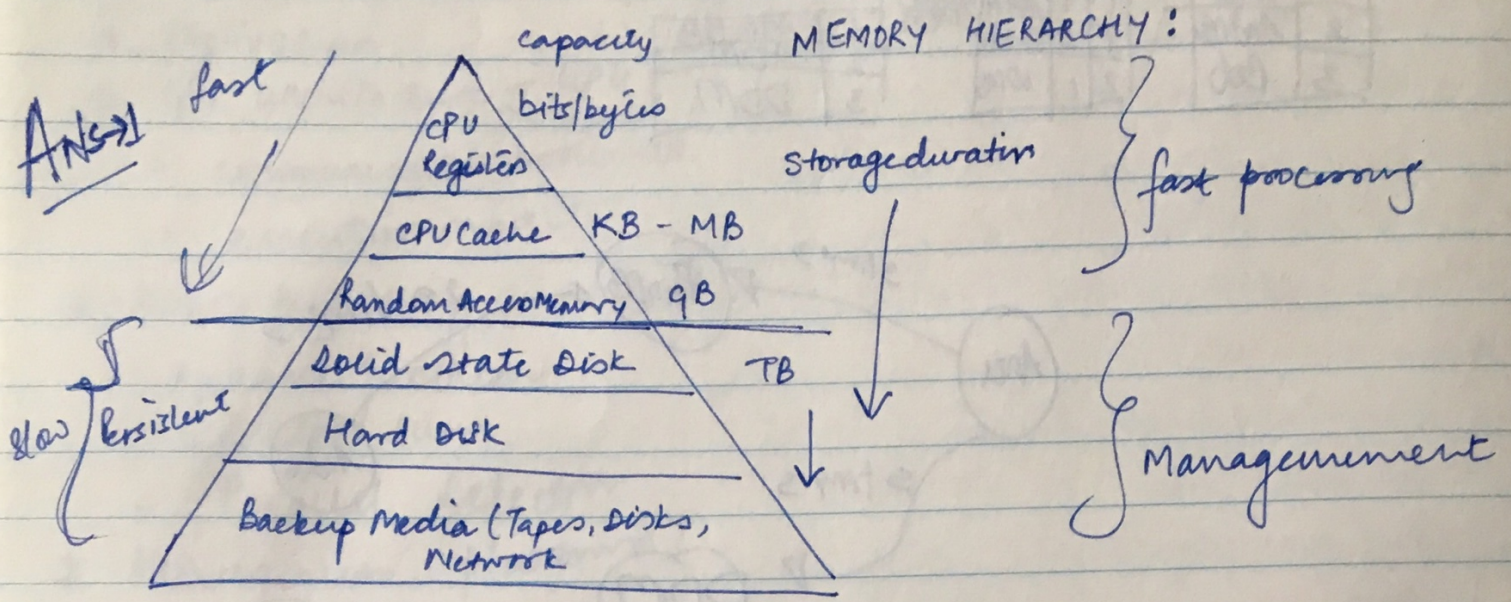 capacity
MEMORY HIERARCHY :
fast
ANS→1
bits/bytes
CPU
Registers
Storage duration
fast processing
CPU Cache
KB - MB
Random Access Memory
GB
Solid State Disk
TB
slow
Persistent
Hard Disk
Managemement
Backup Media (Tapes, Disks,
Network